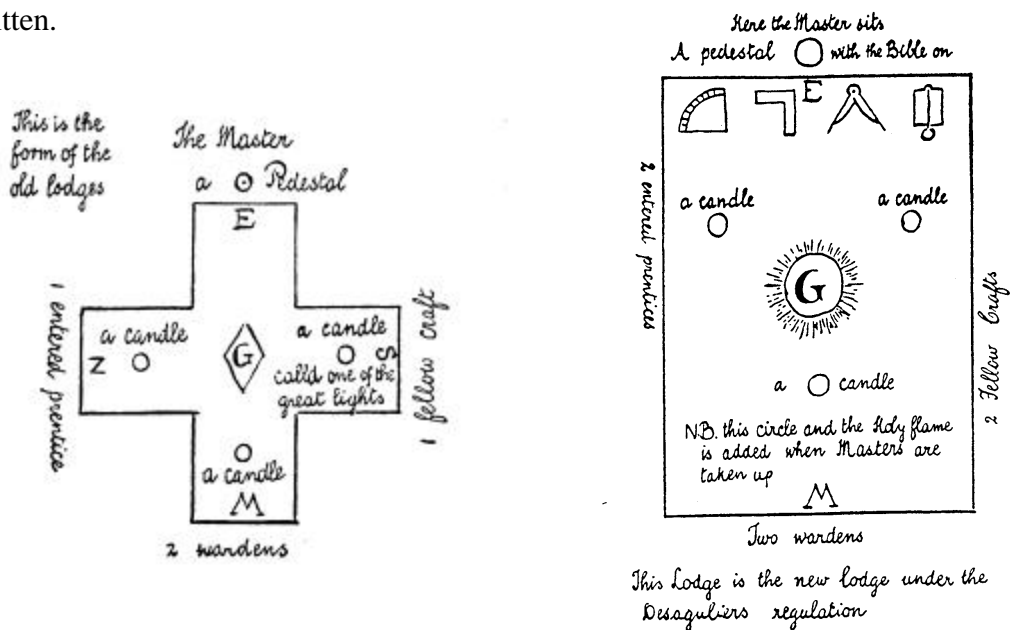 itten.
This is the
form of the
old lodges
The Master
a Pedestal
E
1 entered prentice
a candle
N
G
a candle
S
calld one of the
great lights
1 fellow craft
a candle
M
2 wardens
Here the Master sits
A pedestal with the Bible on
E
2 entered prentices
a candle
a candle
G
2 Fellow Crafts
a candle
N.B. this circle and the Holy flame
is added when Masters are
taken up
M
Two wardens
This Lodge is the new lodge under the
Desaguliers regulation